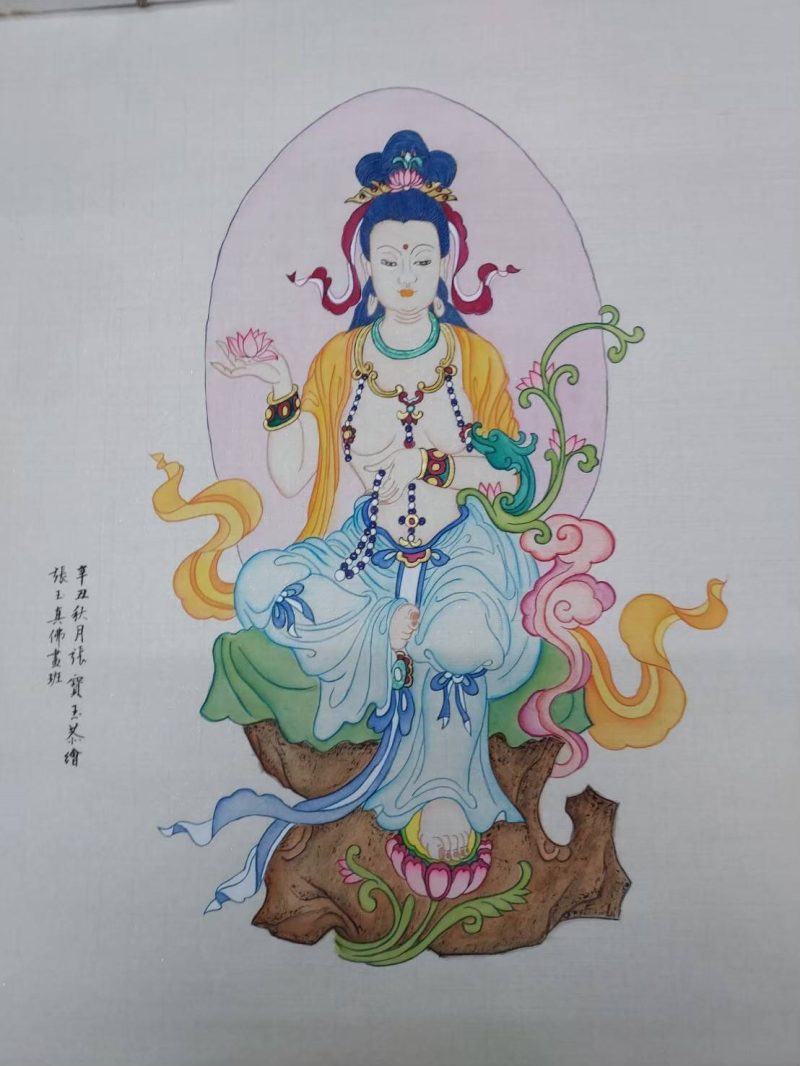 辛丑秋月張寶玉恭繪
張玉真佛畫班